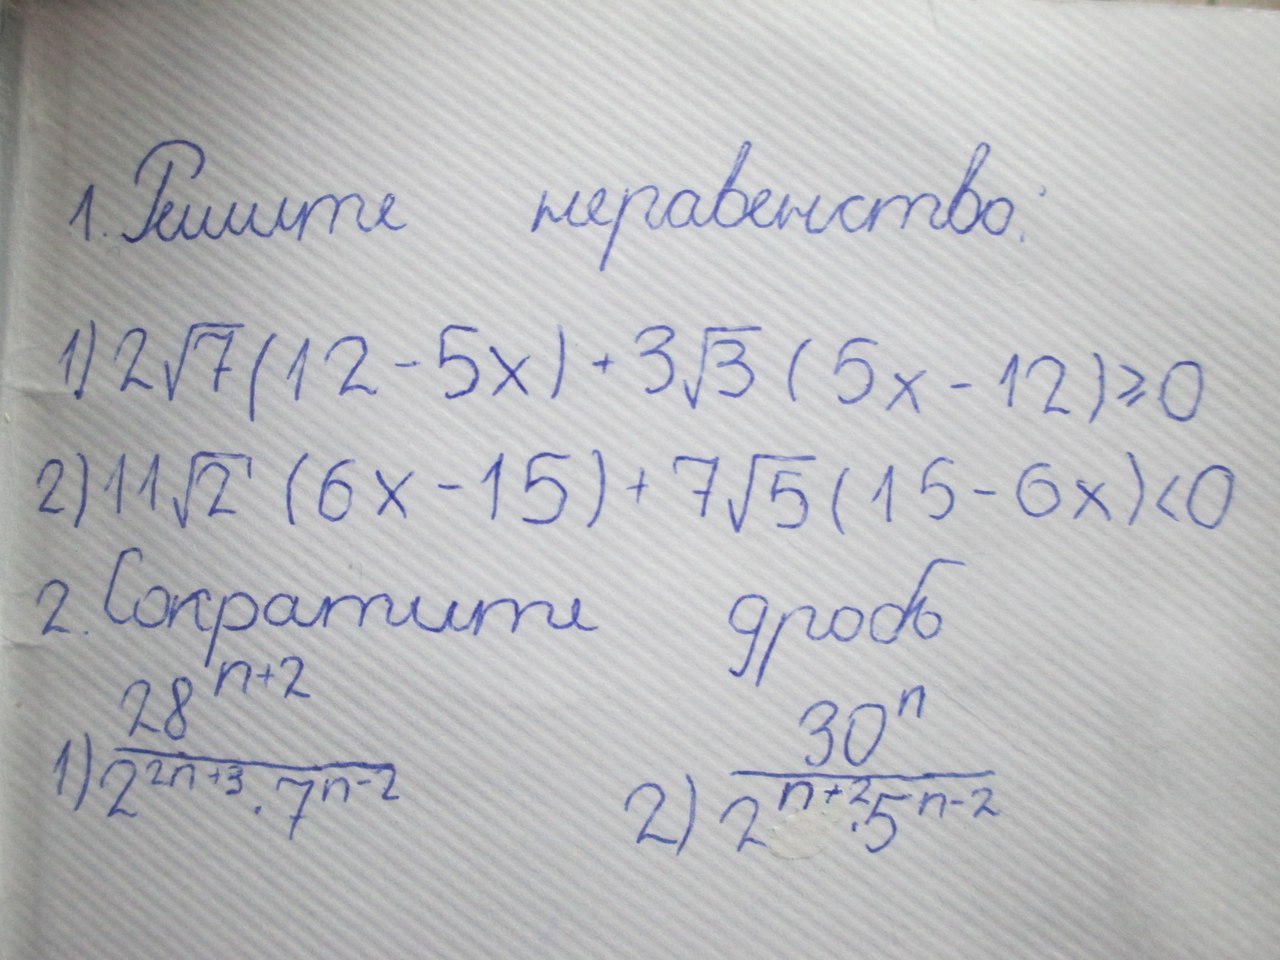 1. Решите неравенство:
1) 2√7(12-5x)+3√3(5x-12)≥0
2) 11√2(6x-15)+7√5(15-6x)<0
2. Сократите дробь
1) 28^(n+2) / (2^(2n+3)·7^(n-2)) 2) 30^n / (2^(n+2)·5^(n-2))